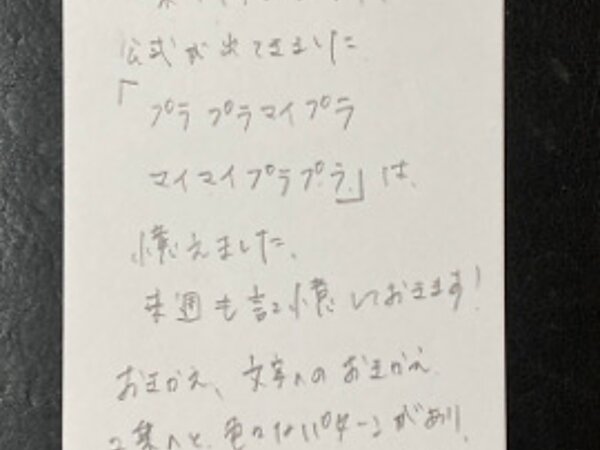 公式が出てきました。
「プラプラマイプラ
マイマイプラプラ」は
憶えました。
来週も記憶しておきます!
おきかえ、文字へのおきかえ
2乗へと、色々なパターンがあり、